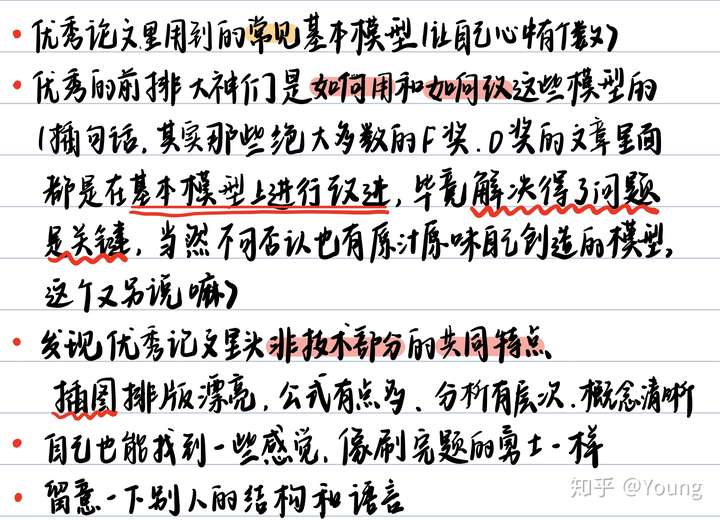 • 优秀论文里用到的常见基本模型(让自己心中有个数)
• 优秀的前排大神们是如何用和如何改这些模型的
(插句话,其实那些绝大多数的F奖、O奖的文章里面
都是在基本模型上进行改进,毕竟解决得了问题
是关键,当然不可否认也有原汁原味自己创造的模型,
这个又另说嘛)
• 发现优秀论文里头非技术部分的共同特点
插图排版漂亮、公式有点多、分析有层次、概念清晰
• 自己也能找到一些感觉,像刷完题的勇士一样
• 留意一下别人的结构和语言
知乎 @Young